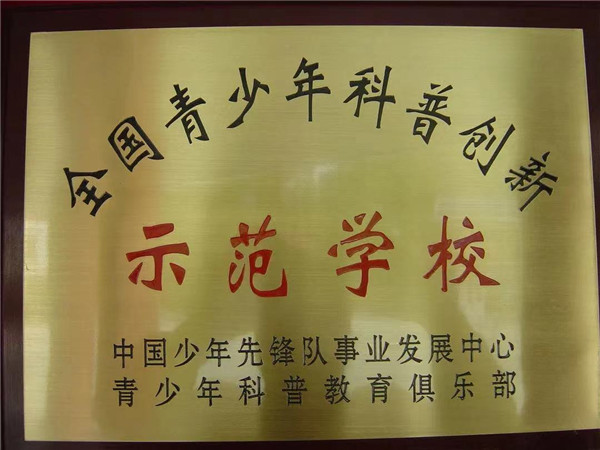 全国青少年科普创新
示范学校
中国少年先锋队事业发展中心
青少年科普教育俱乐部